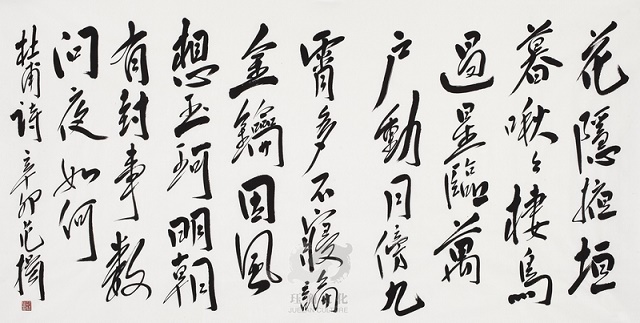 花隱掖垣
暮啾々棲鳥
過星臨萬
户動月傍九
霄多不寢聽
金鑰因風
想玉珂明朝
有封事数
问夜如何
杜甫詩 辛卯 范